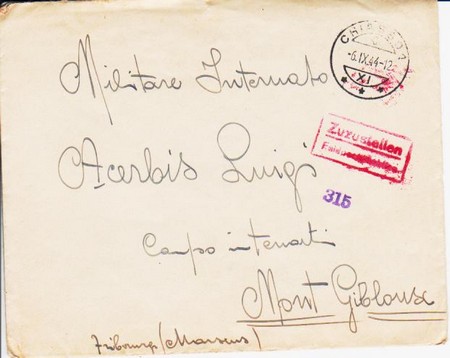 CHIASSO 1
-6.IX.44-12
XI
Militare Internato
Zuzustellen
Acerbis Luigi
315
Campo internati
Mont Gibloux
Fribourg (Marsens)